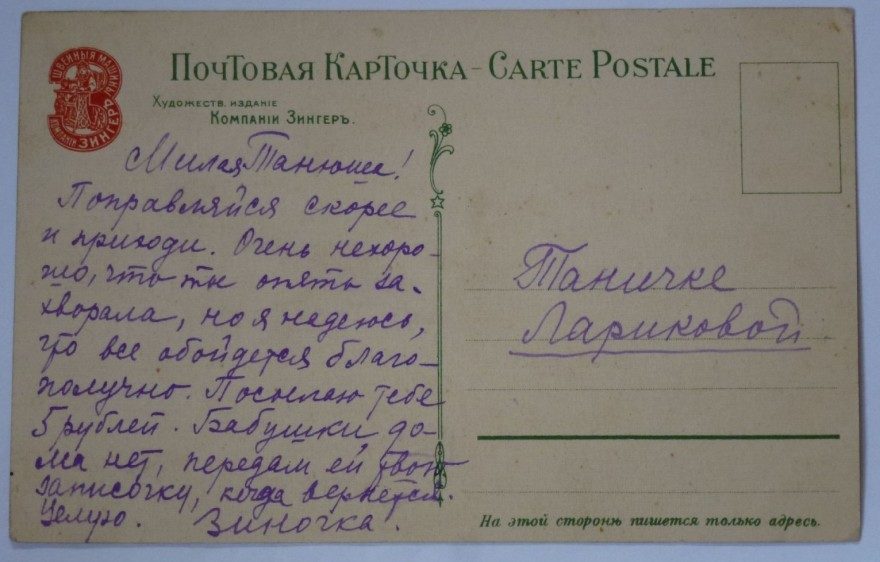 ШВЕЙНЫЯ МАШИНЫ
КОМПАНІИ ЗИНГЕРЪ
ПОЧТОВАЯ КАРТОЧКА – CARTE POSTALE
ХУДОЖЕСТВ. ИЗДАНІЕ
КОМПАНІИ ЗИНГЕРЪ.
Милая Танюша!
Поправляйся скорее
и приходи. Очень нехоро-
шо, что ты опять за-
хворала, но я надеюсь,
что все обойдется благо-
получно. Посылаю тебе
5 рублей. Бабушки до-
ма нет, передам ей твою
записочку, когда вернется.
Целую. Зиночка.
Таничке
Лариковой
На этой сторонѣ пишется только адресъ.